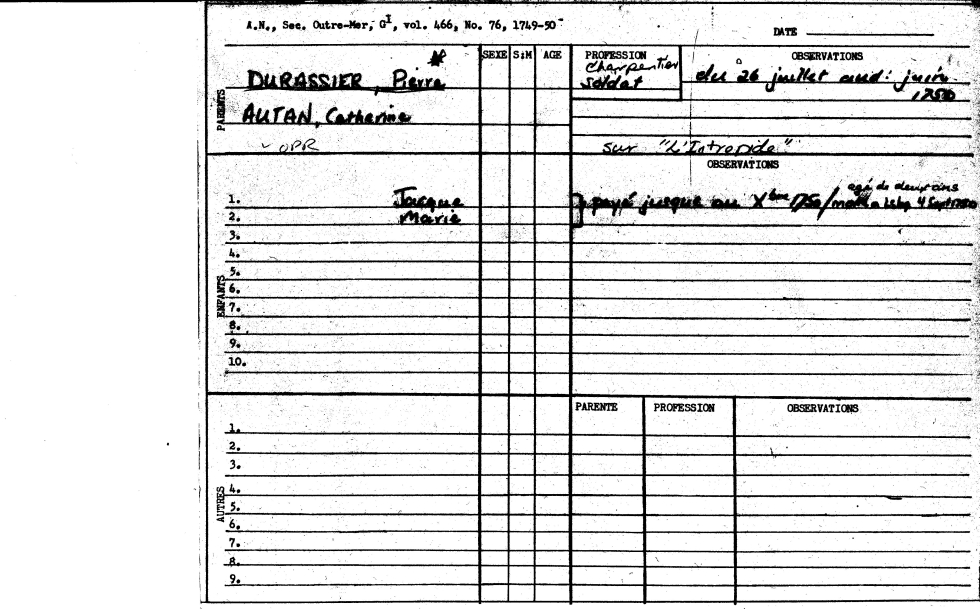 A.N., Sec. Outre-Mer, G^I, vol. 466, No. 76, 1749-50
DATE
SEXE S:M AGE PROFESSION OBSERVATIONS
DURASSIER, Pierre Charpentier soldat du 26 juillet aud: juin 1750
PARENTS
AUTAN, Catharine
OPR sur "L'Intrepide"
OBSERVATIONS
agé de deux ans
1. Jacque payé jusque au Xbre 1750/ 4 Sept 1750
2. Marie
3.
4.
5.
ENFANTS
6.
7.
8.
9.
10.
PARENTE PROFESSION OBSERVATIONS
1.
2.
3.
AUTRES
4.
5.
6.
7.
8.
9.